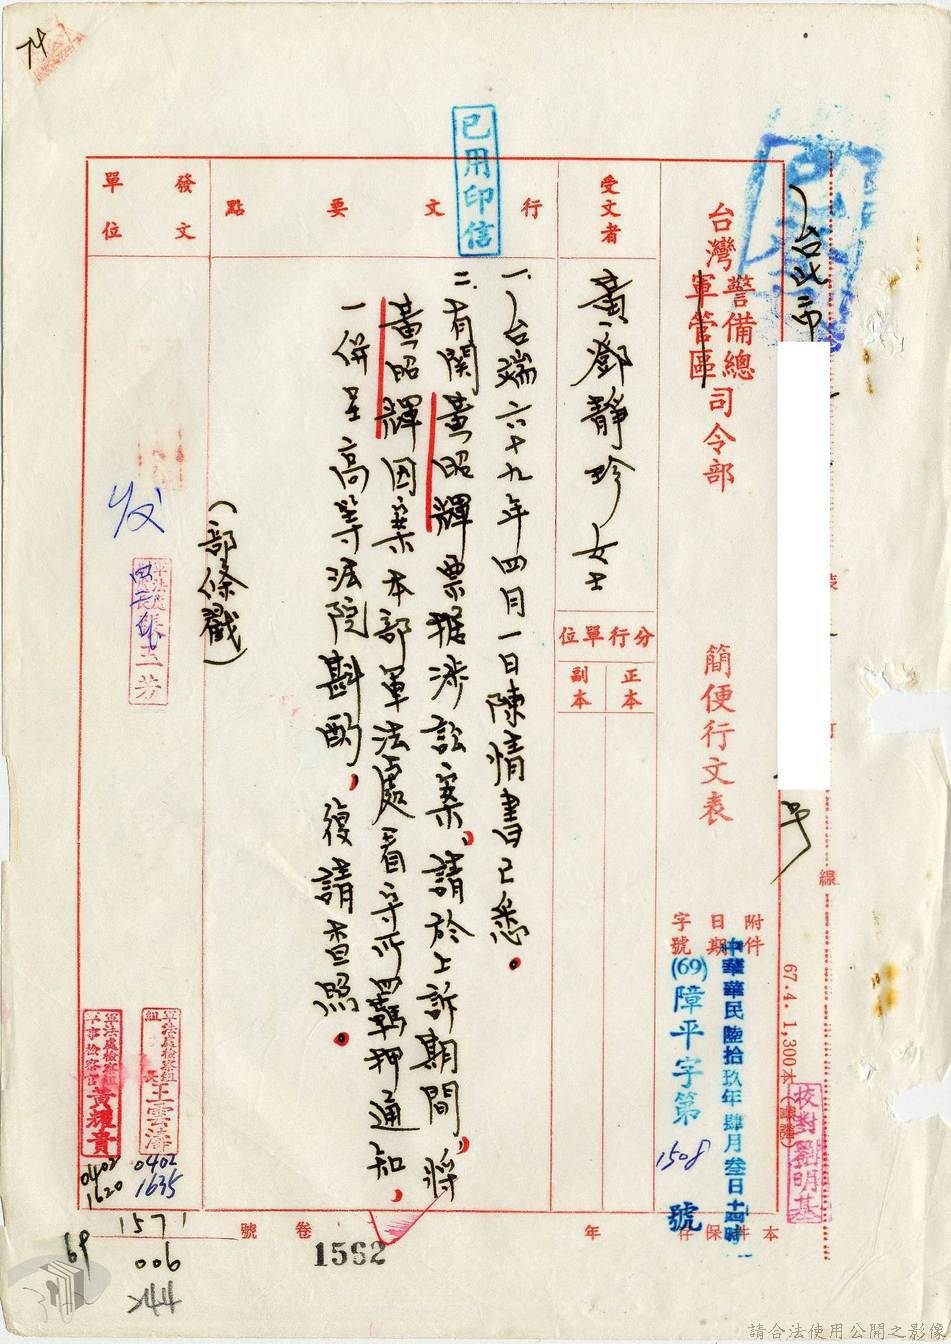 74
已用印信
(台北市
號
台灣警備總司令部
軍管區
簡便行文表
附件
日期
字號
中華民國陸拾玖年肆月叁日
(69)障平字第1508號
受文者
黃鄧靜珍女士
分行單位
正本
副本
行文要點
一、台端六十九年四月一日陳情書已悉。
二、有關黃昭輝票據涉訟案,請於上訴期間,將
黃昭輝因案本部軍法處看守所羈押通知,
一併呈高等法院斟酌,復請查照。
(部條戳)
發文單位
軍法處檢察組
組長王雲濤
0402
1635
軍法處檢察組
軍事檢察官黃耀貴
0402
1620
67.4.1,300本
校對劉明基
裝
訂
線
本件保存
年
卷
號
1562
1571
006
244
69
請合法使用公開之影像